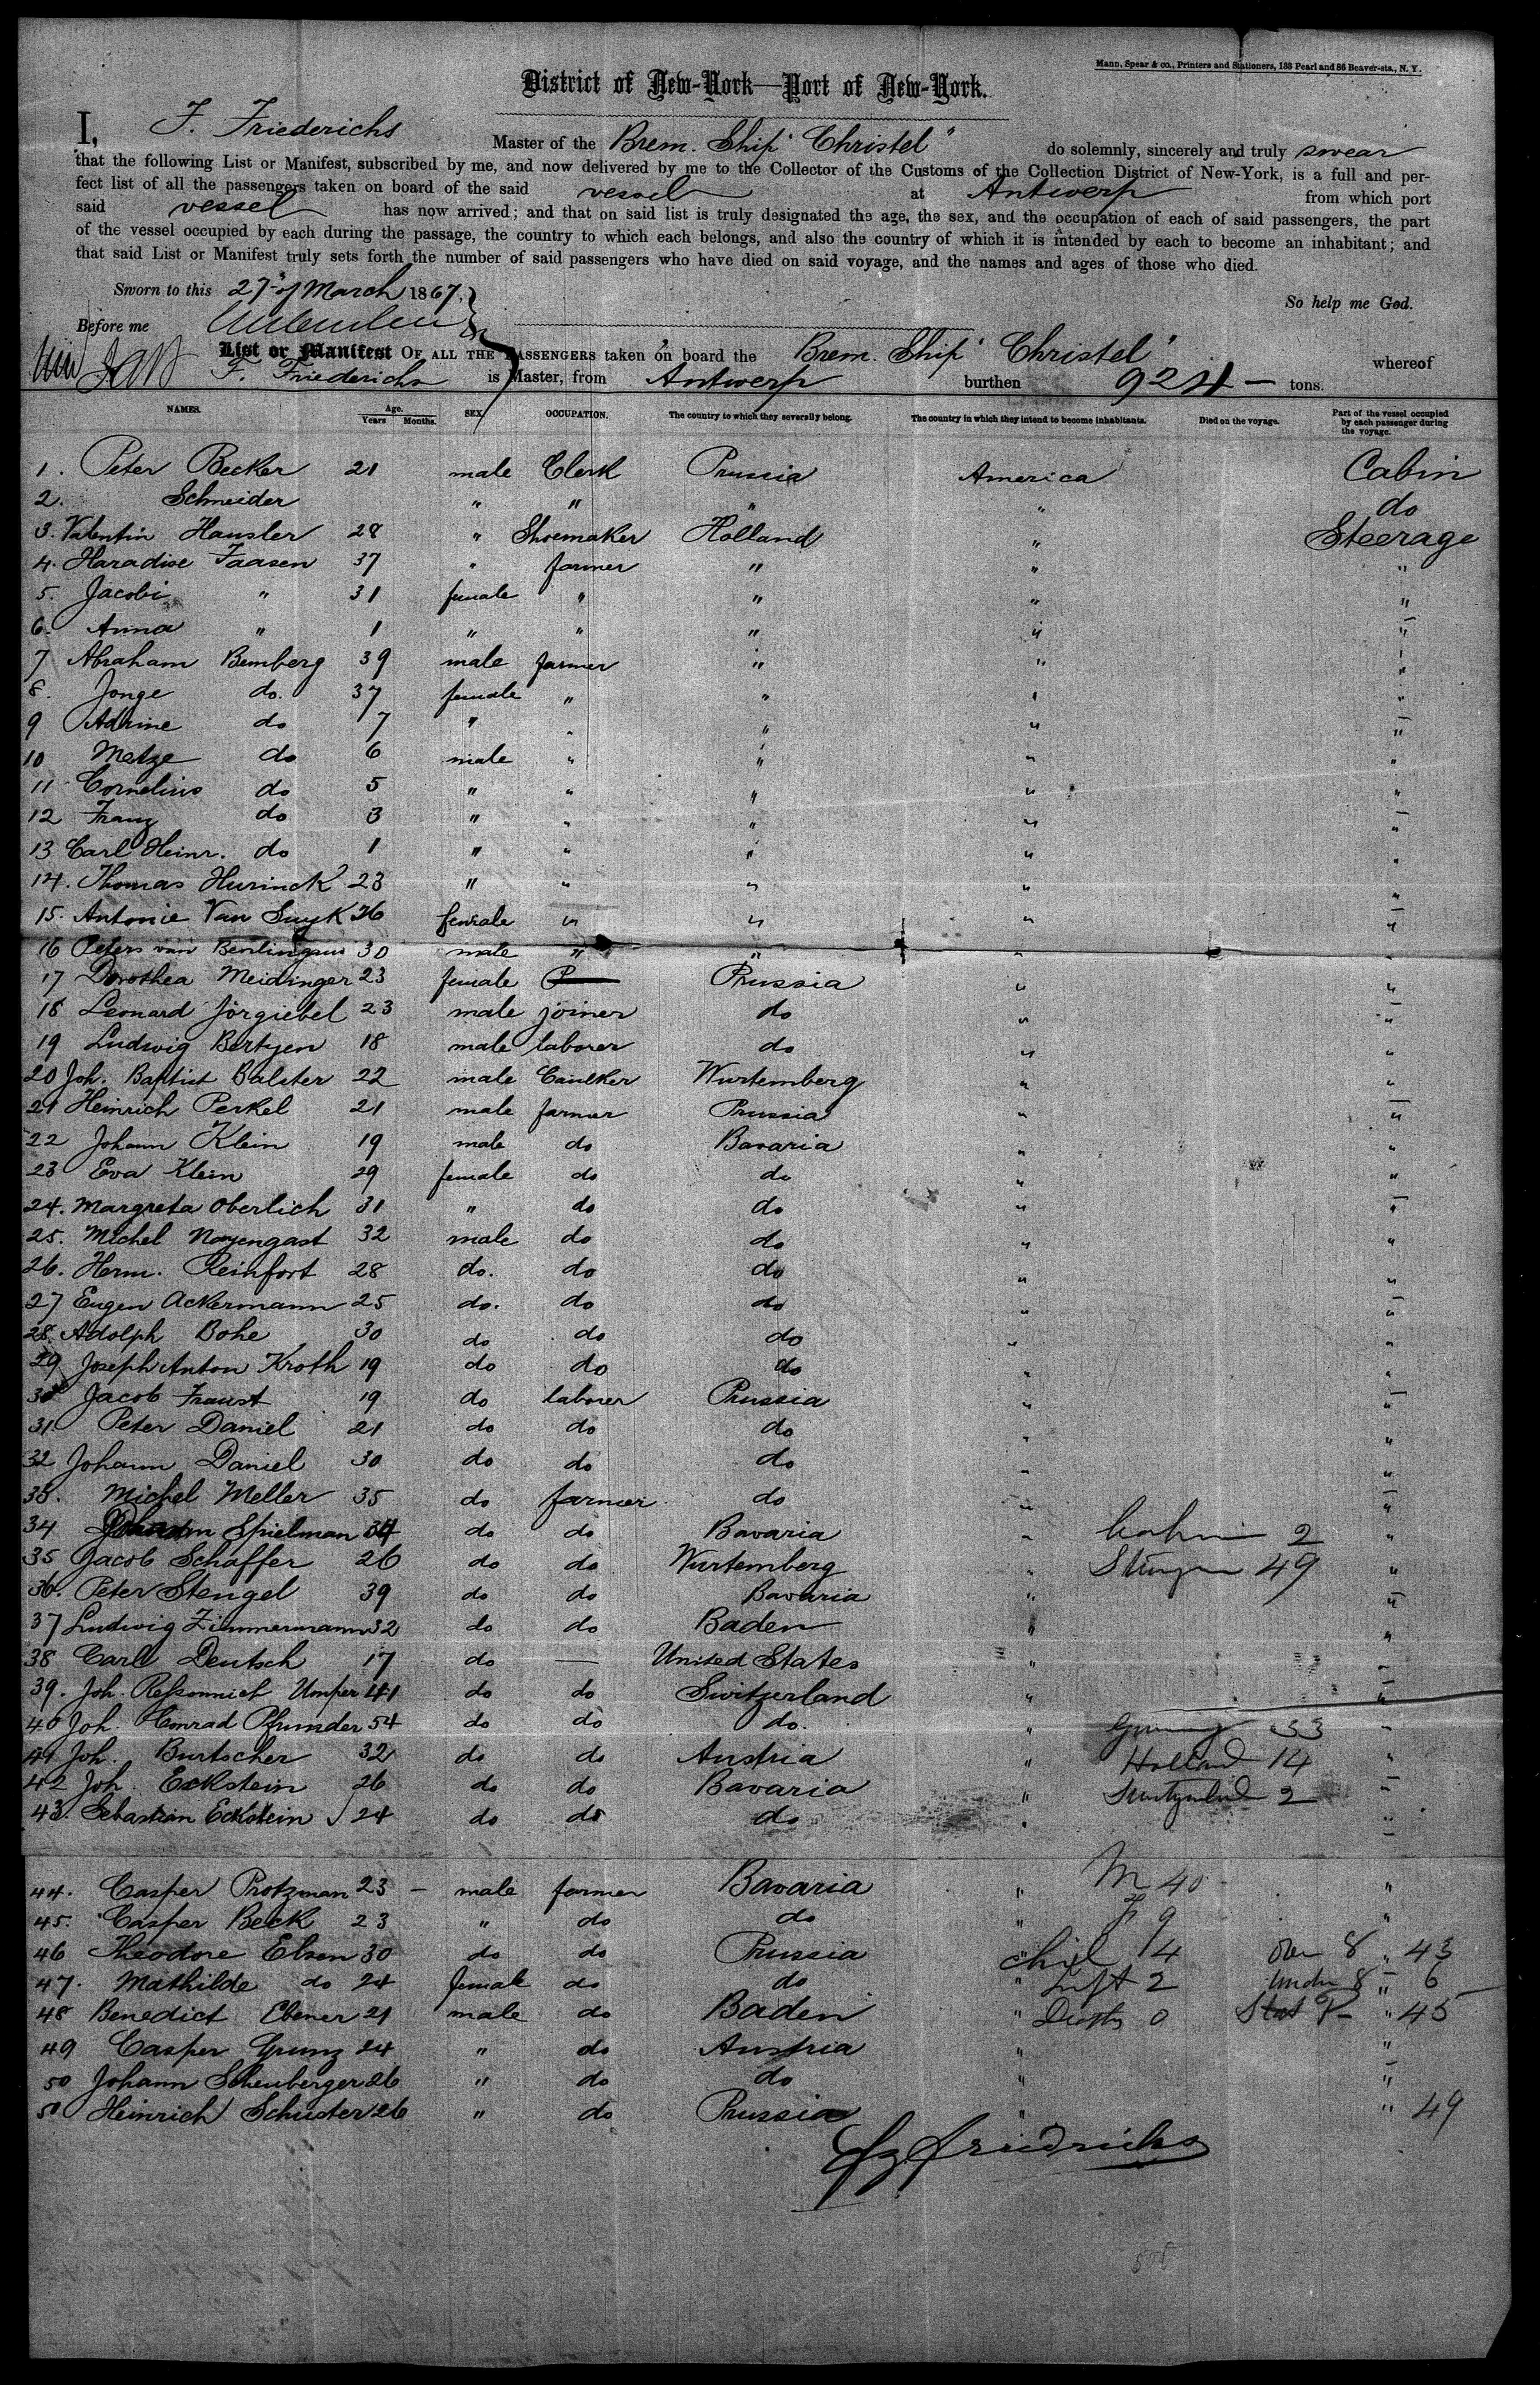 Mann, Spear & co., Printers and Stationers, 183 Pearl and 86 Beaver-sts., N. Y.
District of New-York—Port of New-York.
I, F. Friederichs Master of the Brem. Ship "Christel" do solemnly, sincerely and truly swear
that the following List or Manifest, subscribed by me, and now delivered by me to the Collector of the Customs of the Collection District of New-York, is a full and per-
fect list of all the passengers taken on board of the said vessel at Antwerp from which port
said vessel has now arrived; and that on said list is truly designated the age, the sex, and the occupation of each of said passengers, the part
of the vessel occupied by each during the passage, the country to which each belongs, and also the country of which it is intended by each to become an inhabitant; and
that said List or Manifest truly sets forth the number of said passengers who have died on said voyage, and the names and ages of those who died.
Sworn to this 27" of March 1867, So help me God.
Before me
List or Manifest OF ALL THE PASSENGERS taken on board the Brem. Ship "Christel" whereof
F. Friederichs is Master, from Antwerp burthen 924 — tons.
NAMES. Age. Years Months. SEX. OCCUPATION. The country to which they severally belong. The country in which they intend to become inhabitants. Died on the voyage. Part of the vessel occupied by each passenger during the voyage.
1. Peter Becker 21 male Clerk Prussia America Cabin
2. Schneider " " " " do
3. Valentin Hausler 28 " Shoemaker Holland " Steerage
4. Haradise Faasen 37 " farmer " " "
5. Jacobi " 31 female " " " "
6. Anna " 1 " " " " "
7 Abraham Bemberg 39 male farmer " " "
8. Jonge do. 37 female " " " "
9 Adrine do 7 " " " " "
10 Metze do 6 male " " " "
11 Cornelius do 5 " " " " "
12 Franz do 3 " " " " "
13 Carl Heinr. do 1 " " " " "
14. Thomas Hurinck 23 " " " " "
15. Antonie Van Suyk 26 female " " " "
16 Peters van Benlingaus 30 male " " " "
17 Dorothea Meidinger 23 female Prussia " "
18 Leonard Jörgiebel 23 male joiner do " "
19 Ludwig Bertzen 18 male laborer do " "
20 Joh. Baptist Balster 22 male Caulker Wurtemberg " "
21 Heinrich Perkel 21 male farmer Prussia " "
22 Johann Klein 19 male do Bavaria " "
23 Eva Klein 29 female do do " "
24. Margreta Oberlich 31 " do do " "
25. Michel Noyengast 32 male do do " "
26. Herm. Reinfort 28 do. do do " "
27 Eugen Ackermann 25 do. do do " "
28. Adolph Bohe 30 do do do " "
29 Joseph Anton Kroth 19 do do do " "
30 Jacob Fraust 19 do laborer Prussia " "
31. Peter Daniel 21 do do do " "
32 Johann Daniel 30 do do do " "
33. Michel Meller 35 do farmer do " "
34 Johann Spielman 34 do do Bavaria " Cabin 2 "
35 Jacob Schaffer 26 do do Wurtemberg " 49 "
36. Peter Stengel 39 do do Bavaria " "
37 Ludwig Zimmermann 32 do do Baden " "
38 Carl Deutsch 17 do — United States " "
39. Joh. Umper 41 do do Switzerland " "
40 Joh. Conrad Pfunder 54 do do do. " Germany 33 "
41 Joh. Burtscher 32 do do Austria " Holland 14 "
42 Joh. Eckstein 26 do do Bavaria " Switzerland 2 "
43. Sebastian Eckstein 24 do do do " "
44. Casper Protzman 23 — male farmer Bavaria " M 40 "
45. Casper Beck 23 " do do " F 9 "
46 Theodore Elsen 30 do do Prussia " Chil 4 Over 8 " 43
47. Mathilde do 24 female do do " Inft 2 Under 8 " 6
48 Benedict Ebener 21 male do Baden " Deaths 0 " 45
49 Casper Grunz 24 " do Austria " "
50 Johann Scheuberger 26 " do do " "
51 Heinrich Schuster 26 " do Prussia " " 49
Friedrichs